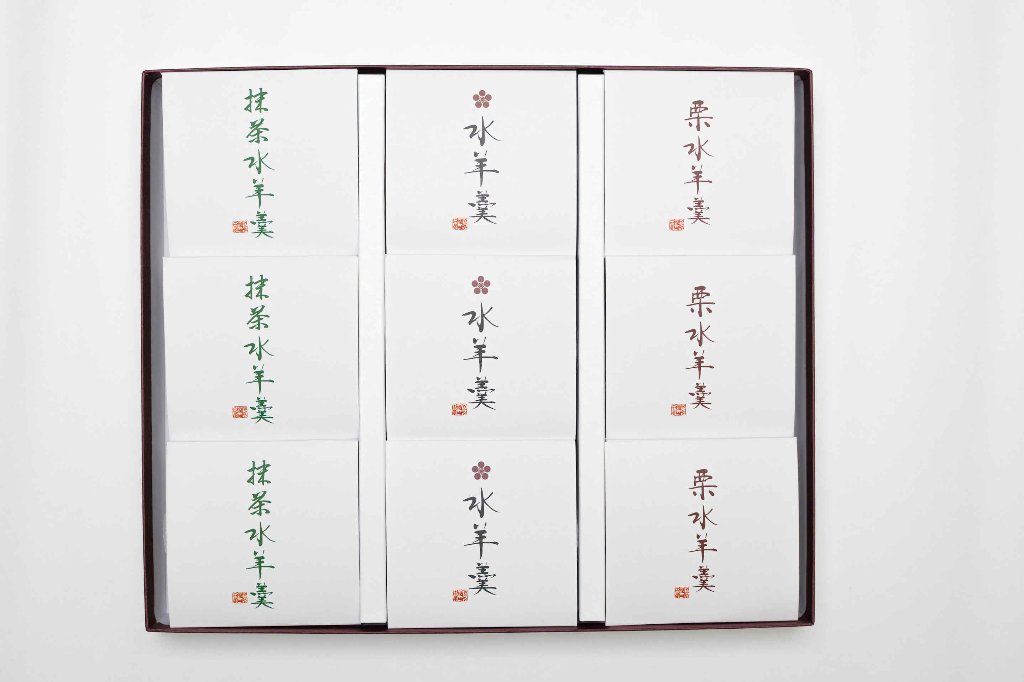 抹茶水羊羹
水羊羹
栗水羊羹
抹茶水羊羹
水羊羹
栗水羊羹
抹茶水羊羹
水羊羹
栗水羊羹